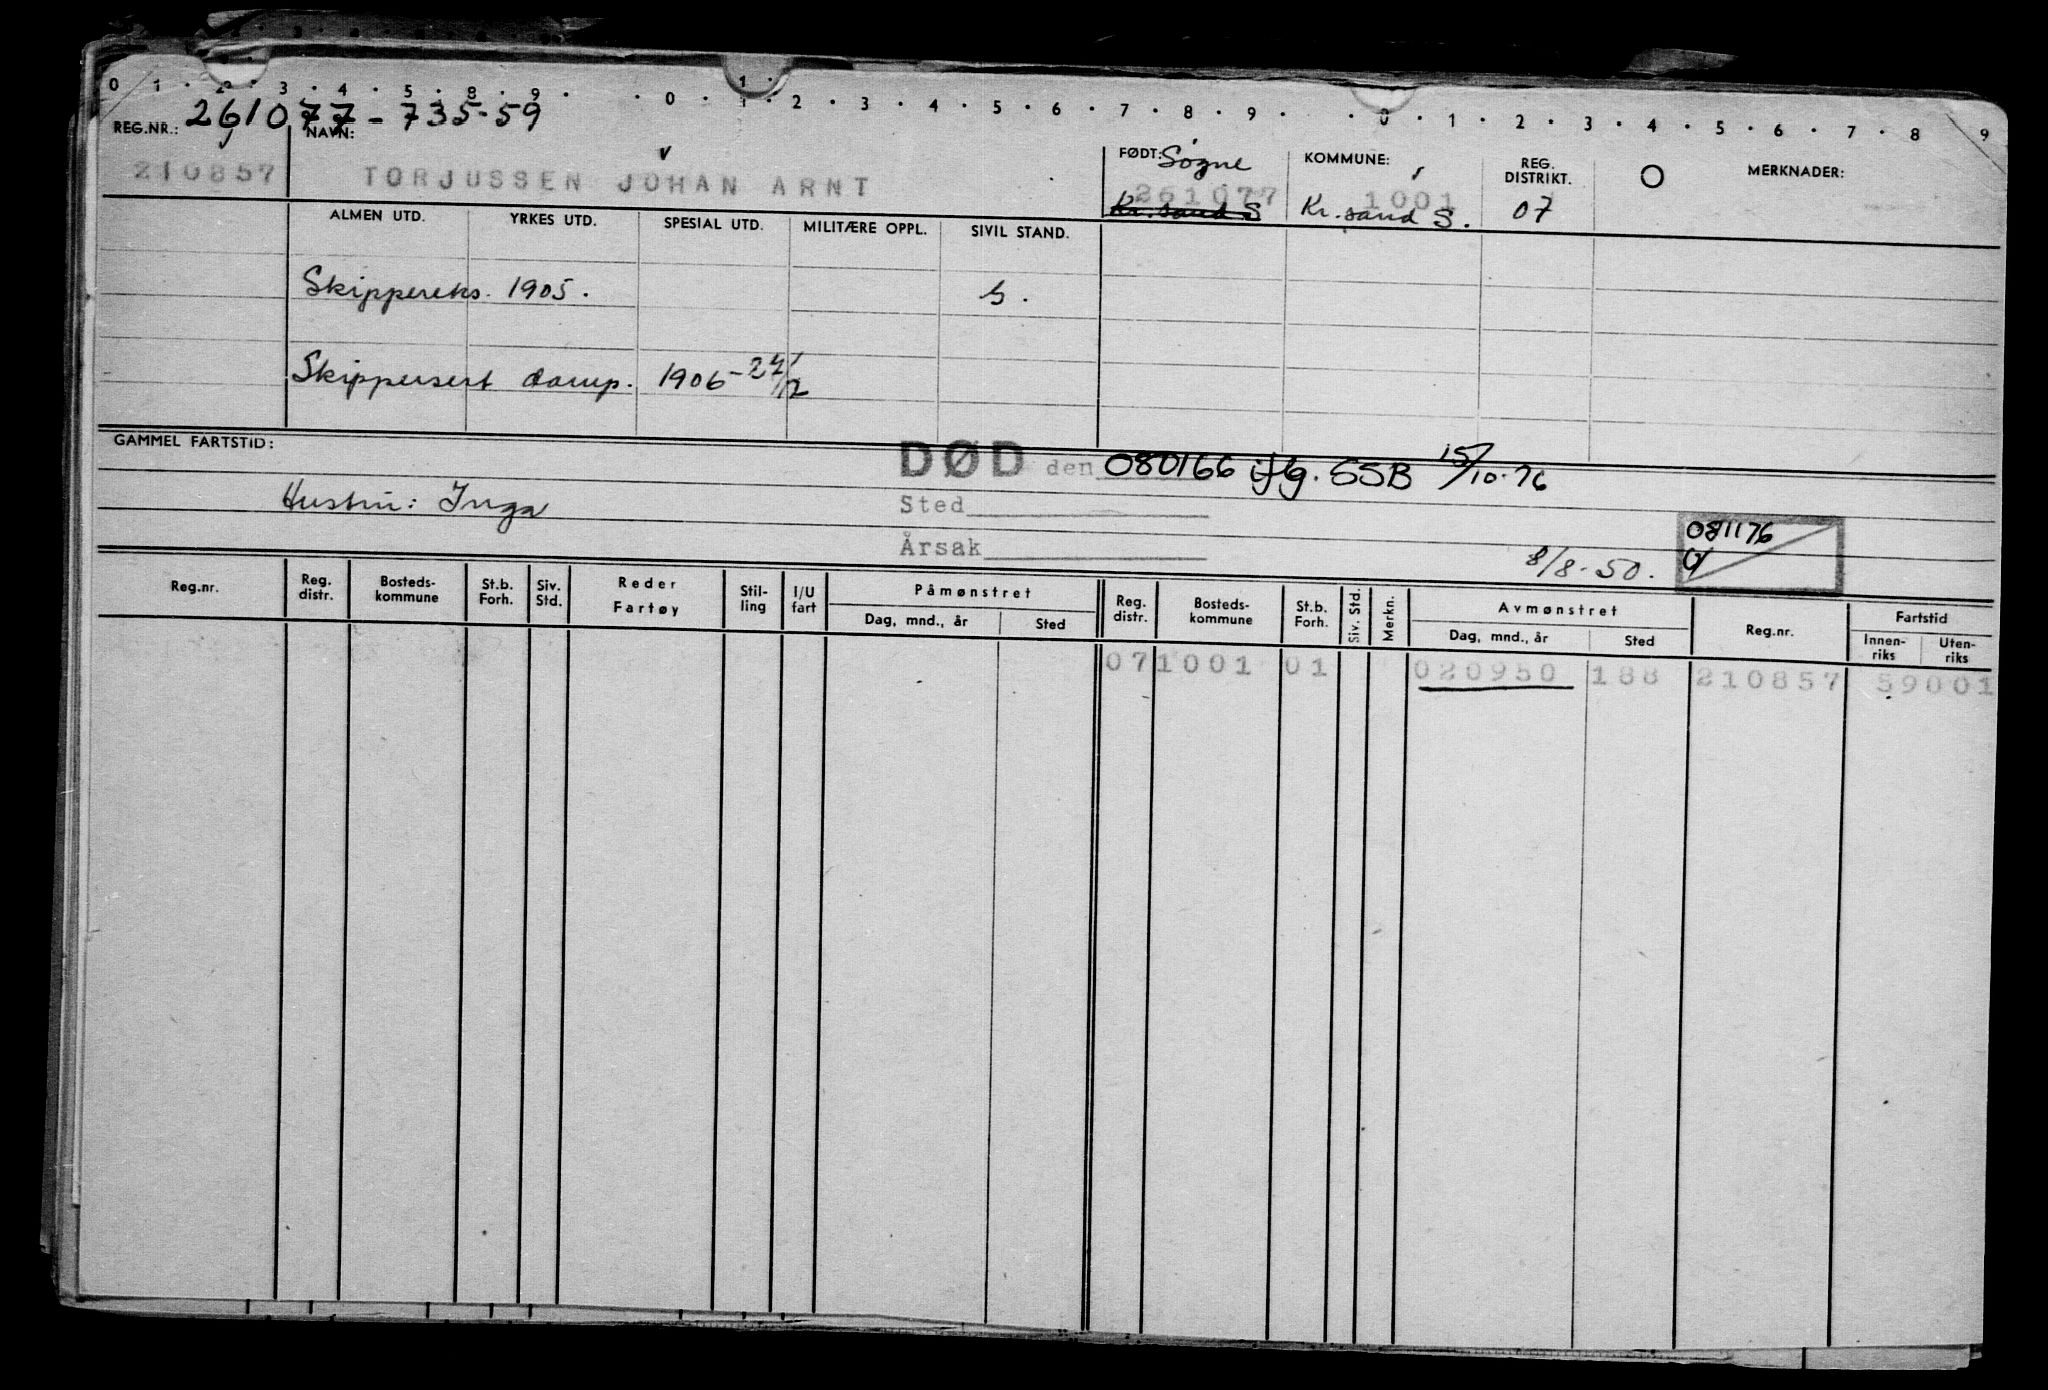 0 1 · 2 · 3 · 4 · 5 · 8 · 9 · · 0 · 1 · 2 · 3 · 4 · 5 · 6 · 7 · 8 · 9 · · 0 · 1 · 2 · 3 · 4 · 5 · 6 · 7 · 8 9
REG.NR.: 261077-735-59
NAVN: FØDT: Søgne KOMMUNE: REG. DISTRIKT. O MERKNADER:
210857 TORJUSSEN JOHAN ARNT 261077 1001
Kr.sand S Kr.sand S. 07
ALMEN UTD. YRKES UTD. SPESIAL UTD. MILITÆRE OPPL. SIVIL STAND.
Skippereks. 1905. G.
Skippersert damp. 1906-24/12
GAMMEL FARTSTID: DØD den 080166 ifg. SSB 15/10-76
Hustru: Inga Sted
081176
Årsak 8/8-50.
Reg.nr. Reg. distr. Bosteds-kommune St.b. Forh. Siv. Std. Reder Fartøy Stil-ling I/U fart Påmønstret Dag, mnd., år Sted Reg. distr. Bosteds-kommune St.b. Forh. Siv. Std. Merkn. Avmønstret Dag, mnd., år Sted Reg.nr. Fartstid Innen-riks Uten-riks
07 1001 01 020950 188 210857 59001